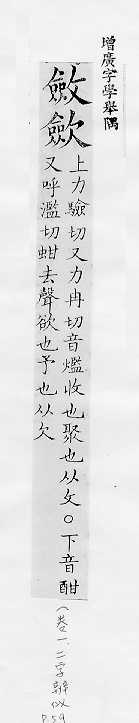 增廣字學舉隅
斂歛
上力驗切又力冉切音爁收也聚也从攵○下音酣
又呼濫切蚶去聲欲也予也从欠
(卷一、二字辨似
P.59